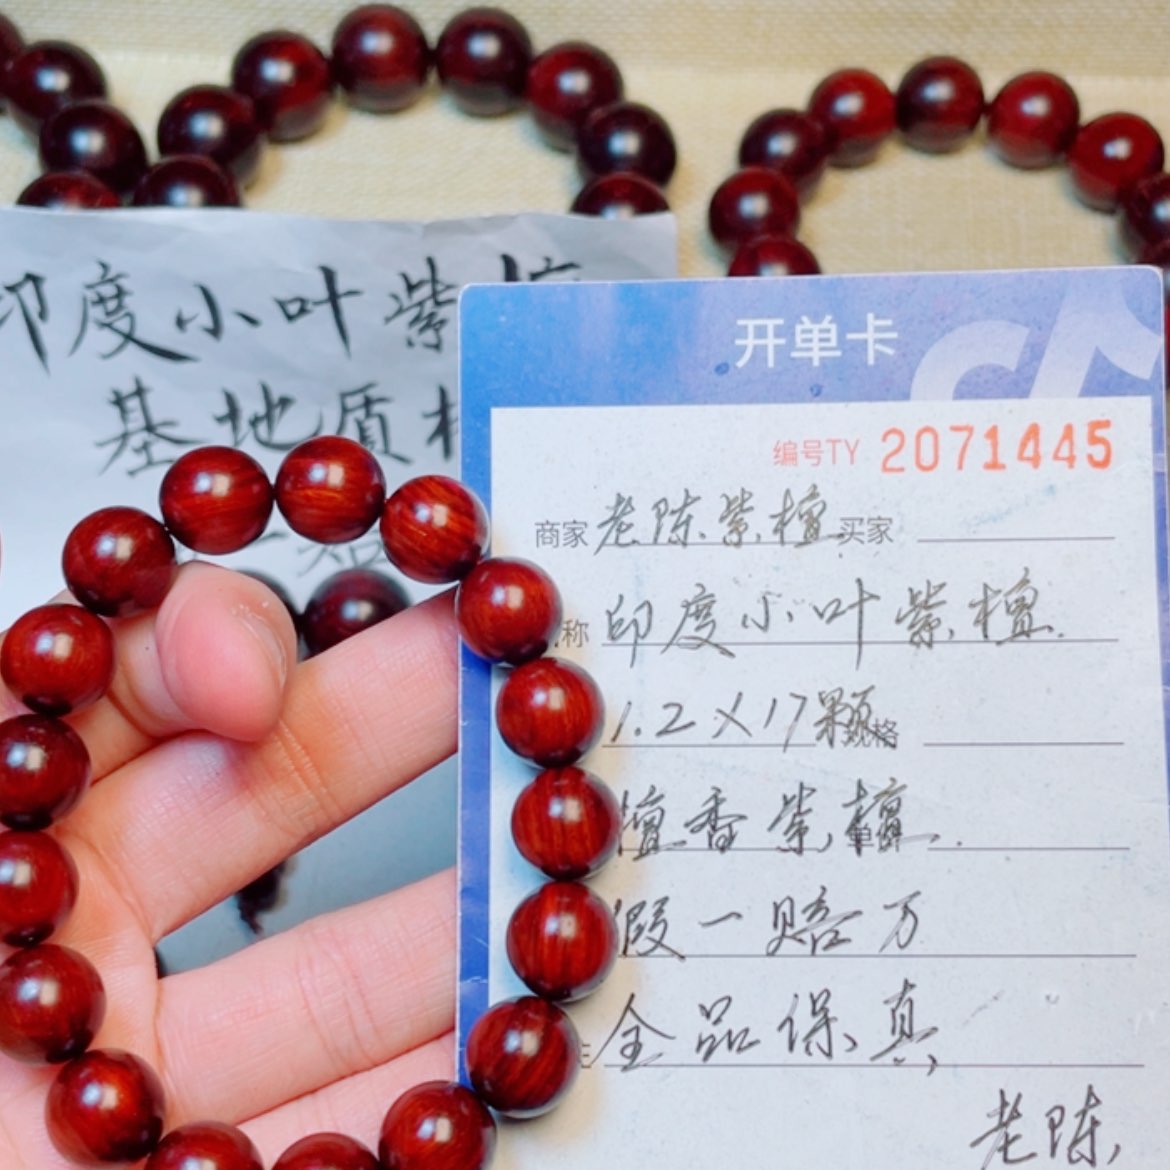 印度小叶紫檀
基地质
开单卡
编号TY 2071445
商家 老陈紫檀 买家
称 印度小叶紫檀
1.2X17颗 规格
檀香紫檀
假一赔万
全品保真
老陈